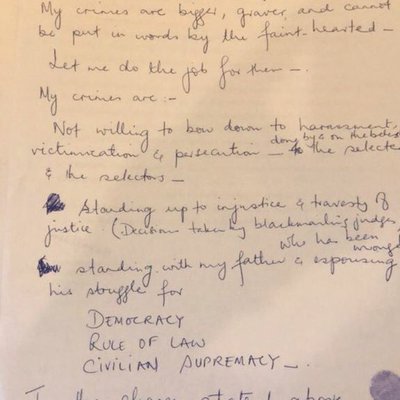 My crimes are bigger, graver, and cannot
be put in words by the faint-hearted -
Let me do the job for them -.
My crimes are :-
Not willing to bow down to harassment,
victimization & persecution - done by & on the behest
the selected
& the selectors -
Standing up to injustice & travesty of
justice (Decisions taken by blackmailing judges
who has been
wronged
standing with my father & espousing
his struggle for
DEMOCRACY
RULE OF LAW
CIVILIAN SUPREMACY -.
above